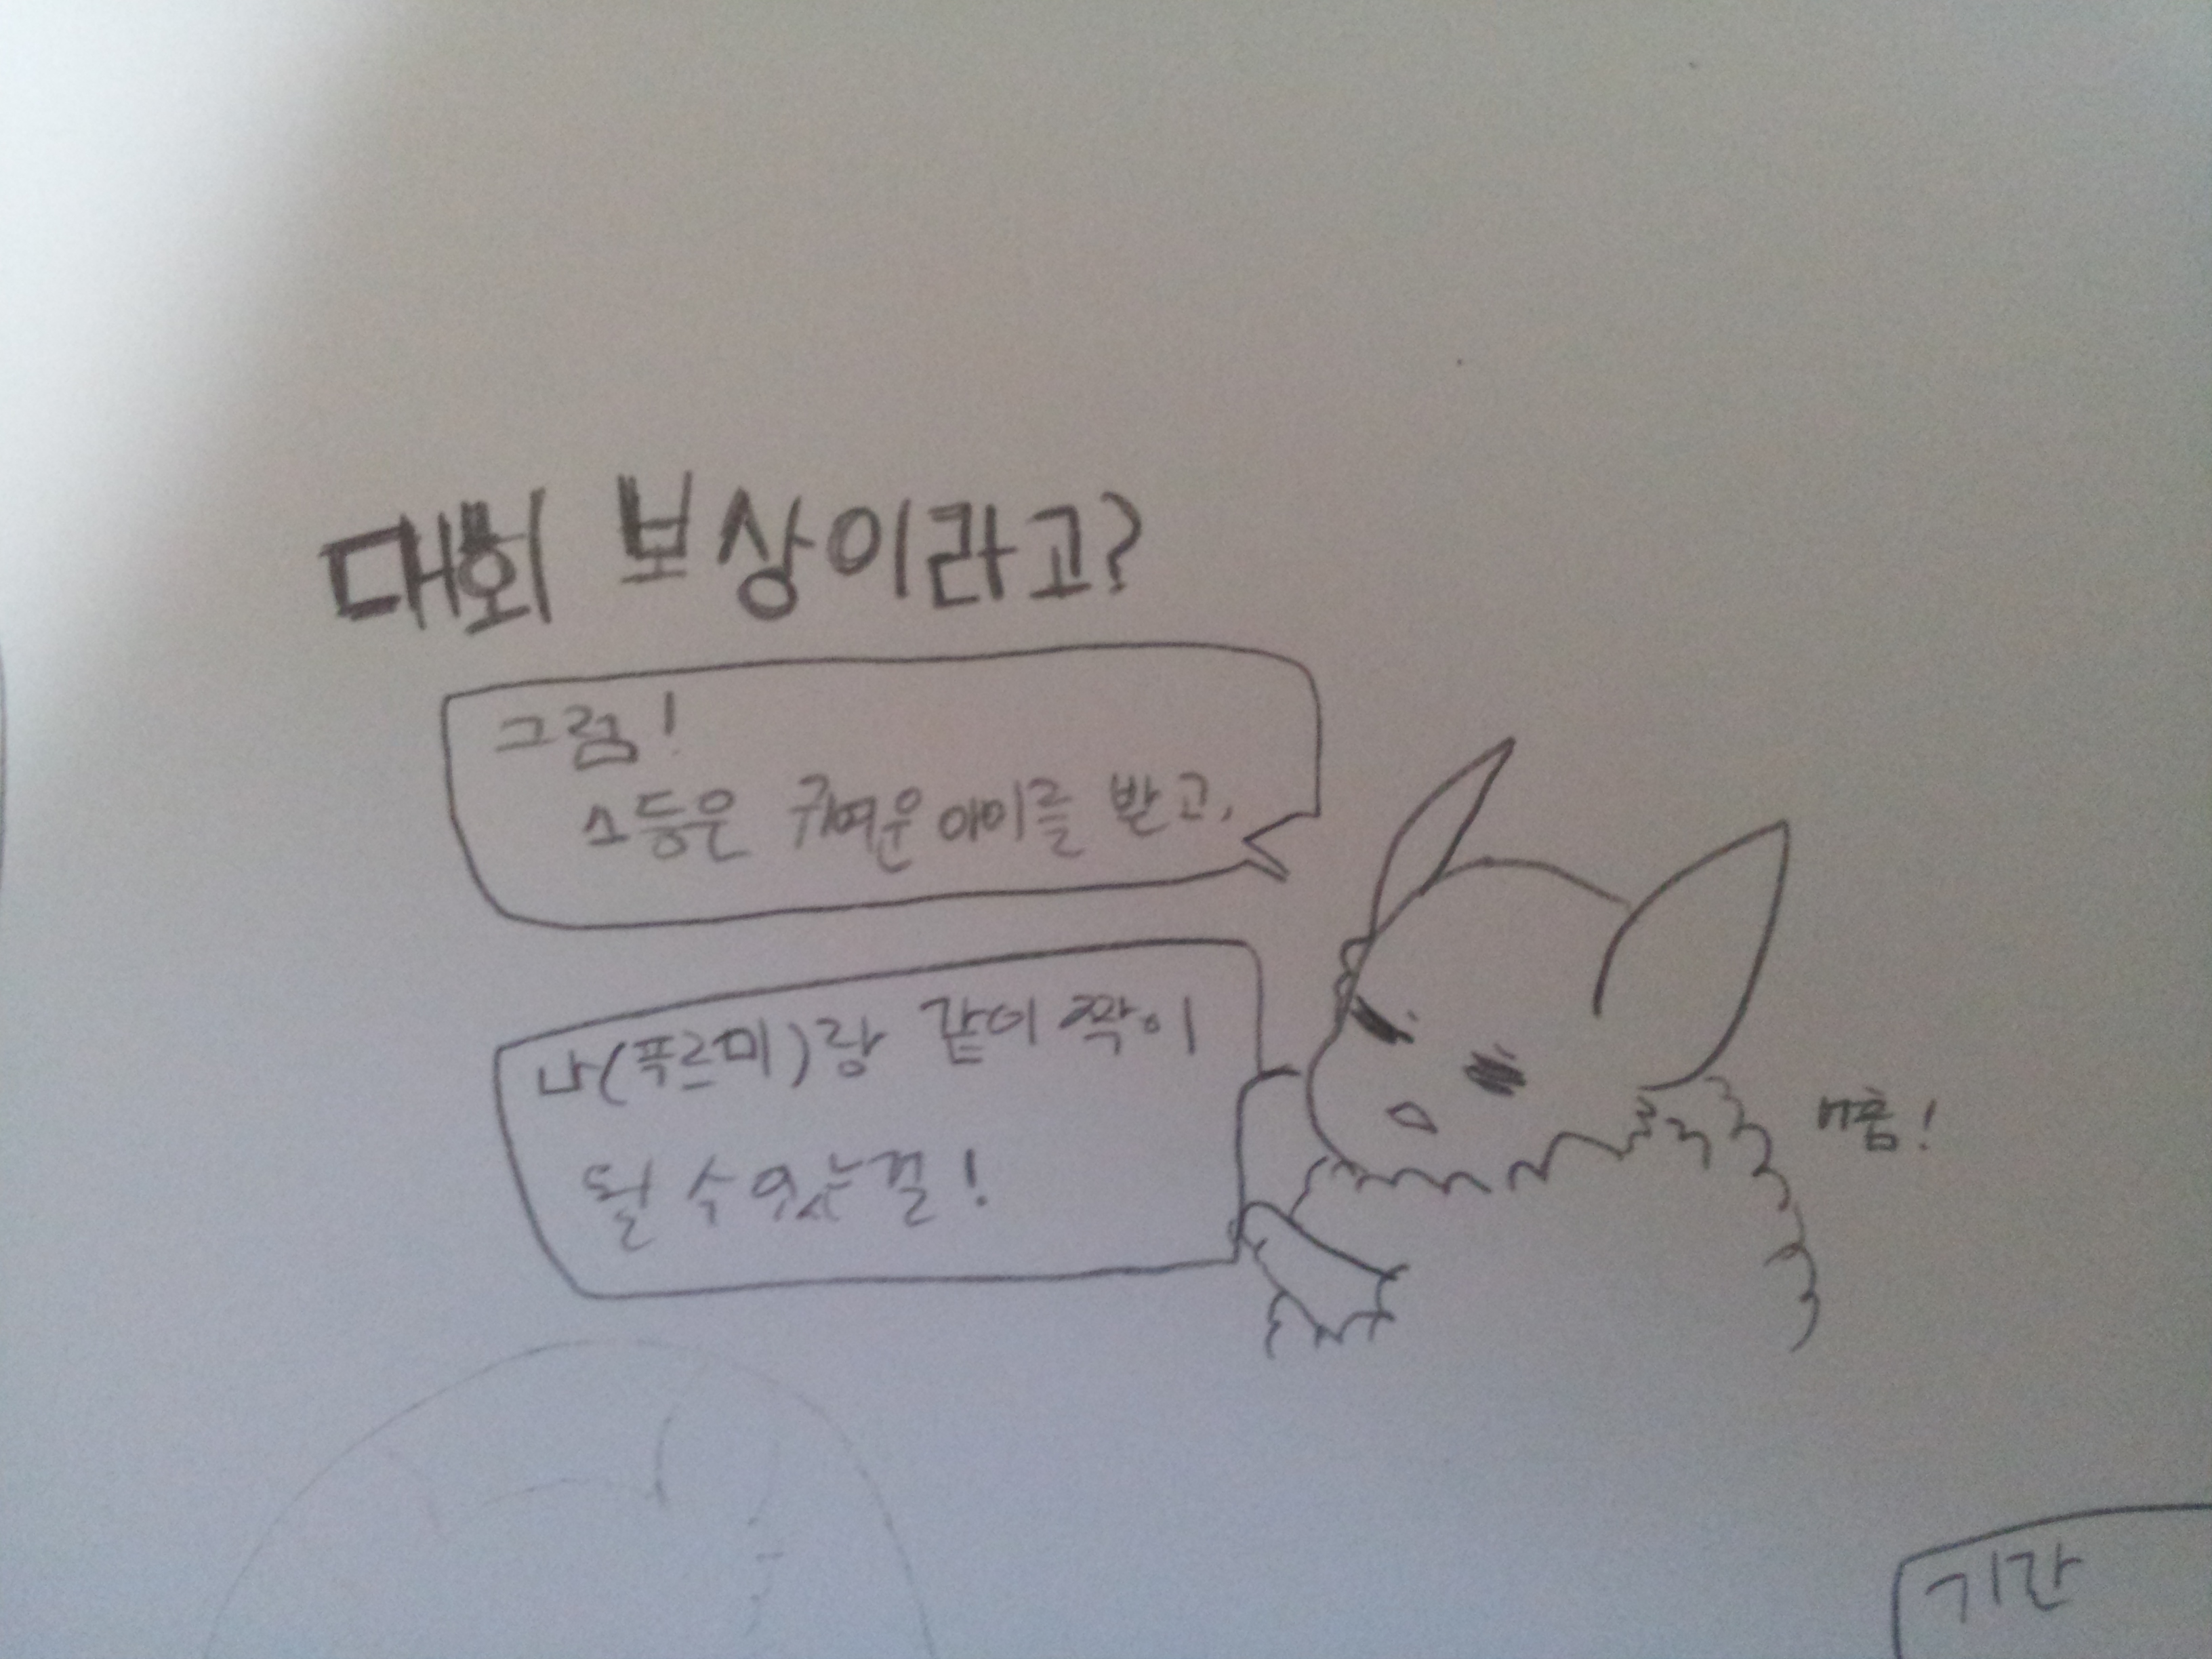 대회 보상이라고?
그럼!
1등은 귀여운 아이를 받고,
나(푸르미)랑 같이 짝이
될 수 있는걸!
에흠!
기간